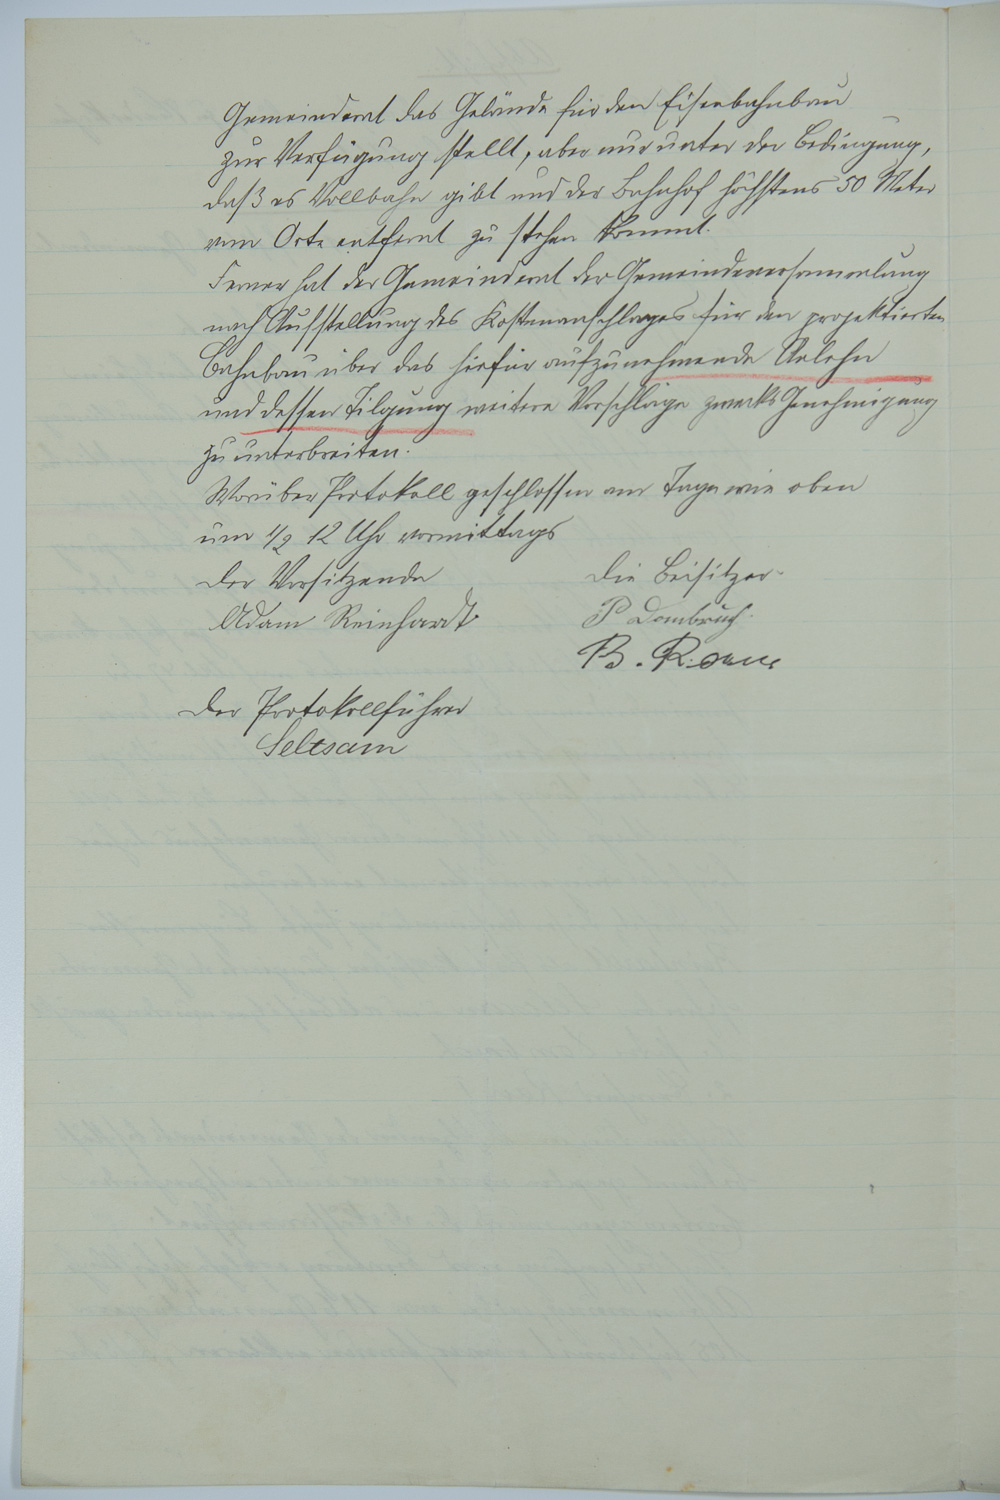 Gemeinderat das Gelände für den Eisenbahnbau
zur Verfügung stellt, aber nur unter der Bedingung,
daß es Vollbahn gibt und der Bahnhof höchstens 50 Meter
vom Orte entfernt zu stehen kommt.
Ferner hat der Gemeinderat der Gemeindeversammlung
nach Aufstellung des Kostenanschlages für den projektierten
Bahnbau über das hiefür aufzunehmende Anlehn
und dessen Tilgung weitere Vorschläge zwecks Genehmigung
zu unterbreiten.
Worüber Protokoll geschlossen am Tage wie oben
um 1/2 12 Uhr vormittags
Der Vorsitzende
Die Beisitzer
Adam Reinhardt
P Dombruch
B.
Der Protokollführer
Seltsam